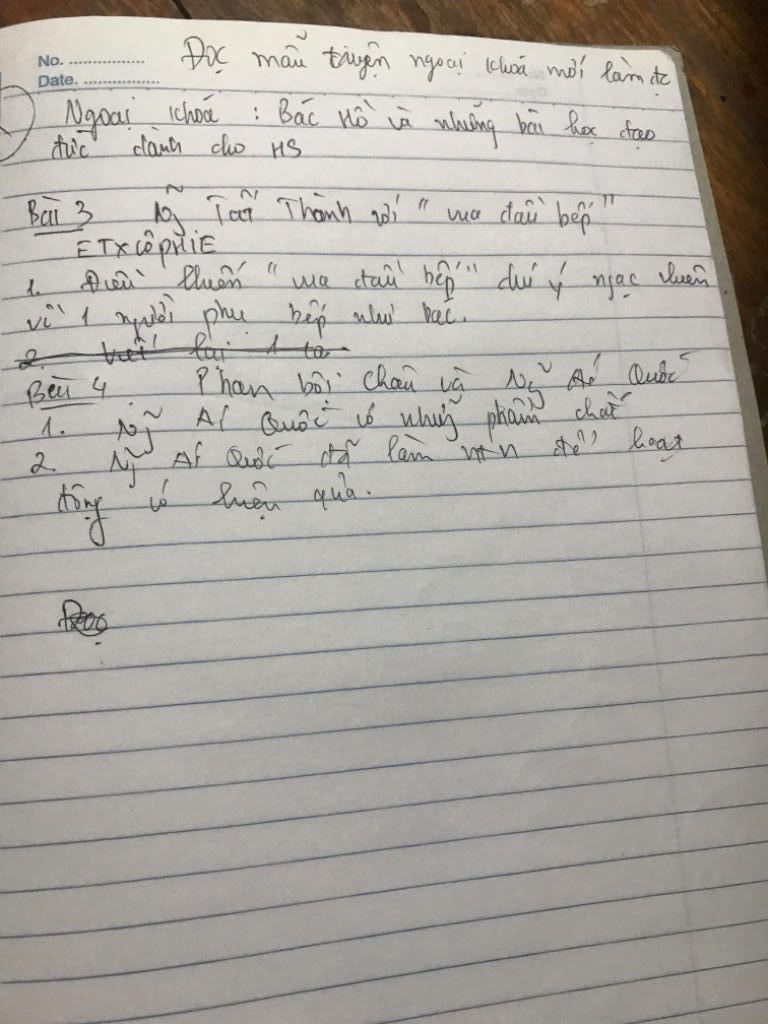 No. ................ Đọc mẩu truyện ngoại khoá mới làm đc
Date. ................
Ngoại khoá : Bác Hồ và những bài học đạo
đức dành cho HS
Bài 3 Ng̃ Tất Thành với "vua đầu bếp"
ETXCÔPHIE
1. Điều khiến "vua đầu bếp" chú ý ngạc nhiên
về 1 người phụ bếp như bác.
2. Viết lại 1
Bài 4. Phan bội Châu và Ng̃ Ái Quốc
1. Ng̃ Ái Quốc có những phẩm chất
2. Ng̃ Ái Quốc đã làm ntn để hoạt
động có hiệu quả.